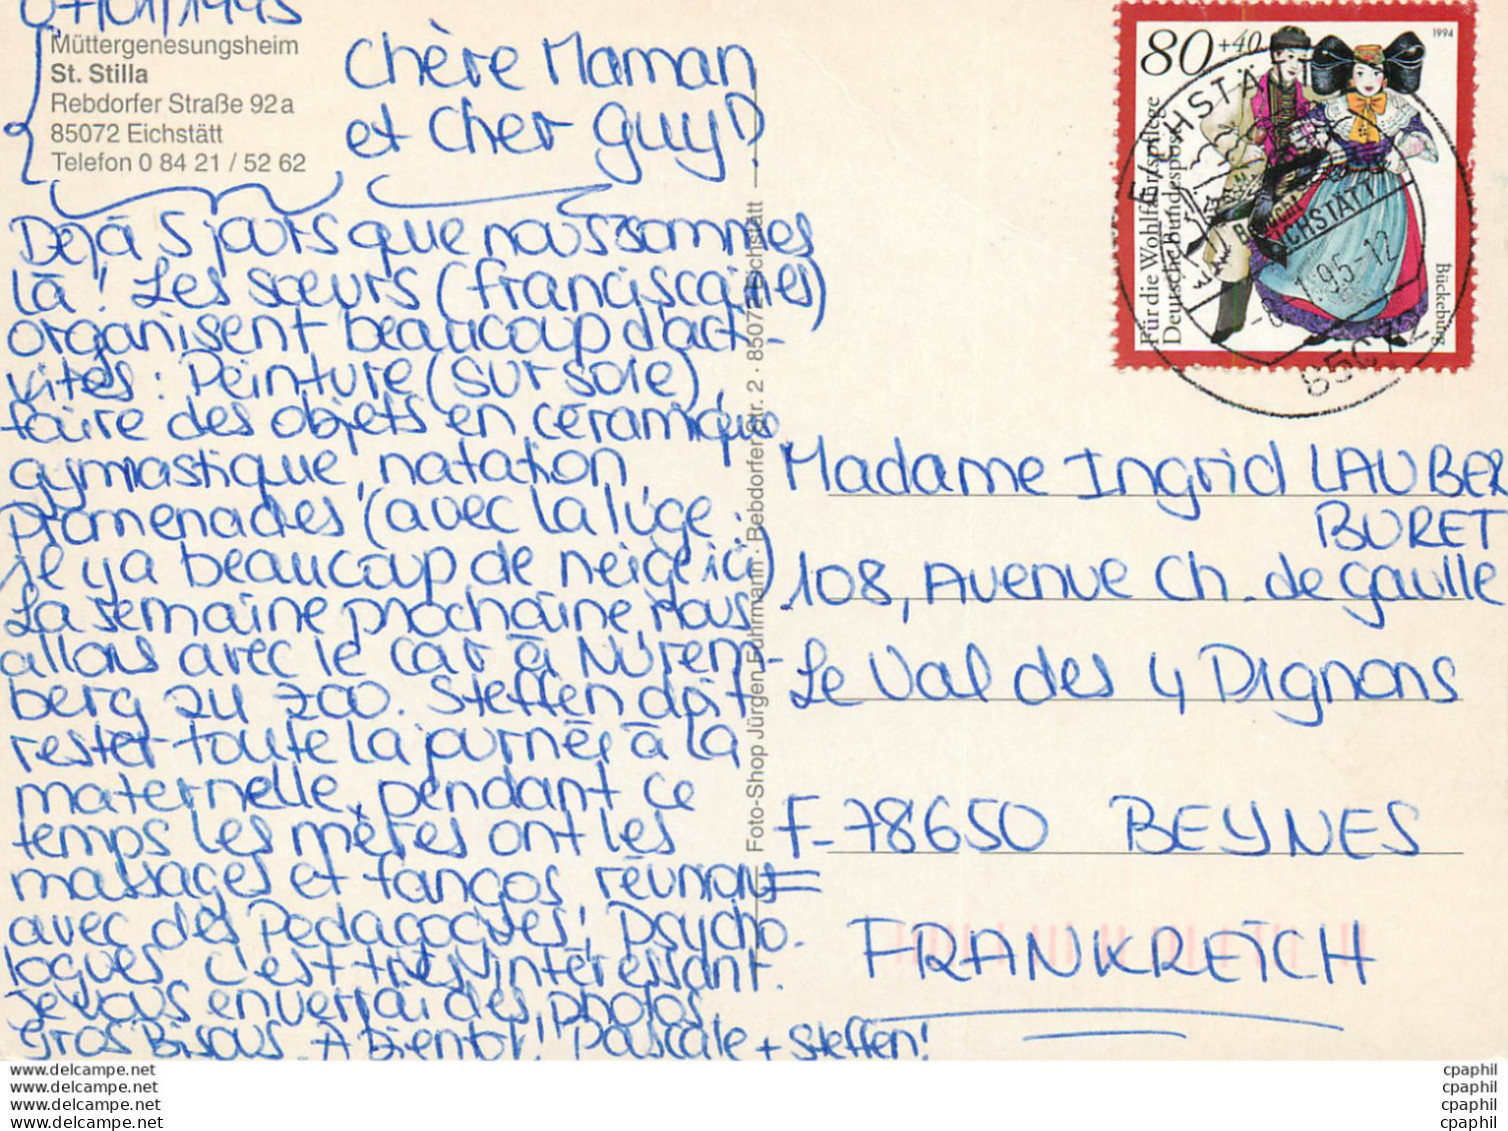 07/01/1995
Müttergenesungsheim
St. Stilla
Rebdorfer Straße 92 a
85072 Eichstätt
Telefon 0 84 21 / 52 62
Chère Maman
et Cher Guy!
Déjà 5 jours que nous sommes
là! Les sœurs (franciscaines)
organisent beaucoup d'acti-
vités: Peinture (sur soie),
faire des objets en céramique
gymnastique, natation,
promenades (avec la luge:
il y a beaucoup de neige ici)
La semaine prochaine, nous
allons avec le car à Nürem-
berg zu zoo. Steffen doit
rester toute la journée à la
maternelle, pendant ce
temps les mères ont les
massages et tangos réunions
avec des Pedagogues, Psycho-
logues, c'est très intéressant.
Je vous enverrai des photos.
Gros Bisous. A bientôt! Pascale + Steffen!
Foto-Shop Jürgen Fuhrmann · Rebdorfer Str. 2 · 85072 Eichstätt
80+40
1994
Für die Wohlfahrtspflege
Deutsche Bundespost
Bückeburg
EICHSTÄTT
EICHSTÄTT
1.95-12
85072
Madame Ingrid LAUBER
BURET
108, Avenue Ch. de Gaulle
Le Val des 4 Pignons
F-78650 BEYNES
FRANKREICH
www.delcampe.net
www.delcampe.net
www.delcampe.net
www.delcampe.net
cpaphil
cpaphil
cpaphil
cpaphil